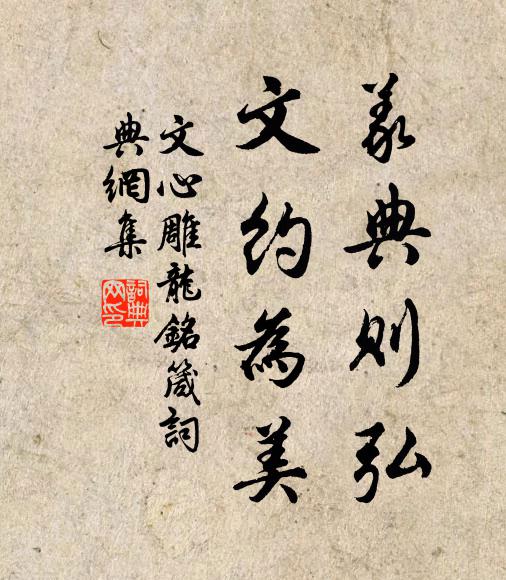 義典則弘
文約為美
文心雕龍銘箴詞
典網集
詞典網印